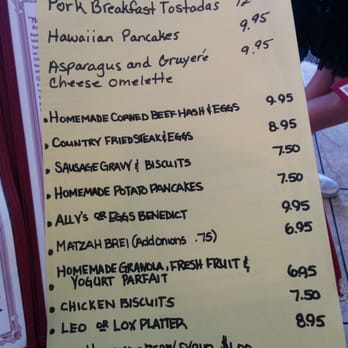 Pork Breakfast Tostadas 12
Hawaiian Pancakes 9.95
Asparagus and Gruyeré 9.95
Cheese Omelette
• HOMEMADE CORNED BEEF HASH & EGGS 9.95
• COUNTRY FRIED STEAK & EGGS 8.95
• SAUSAGE GRAVY & BISCUITS 7.50
• HOMEMADE POTATO PANCAKES 7.50
• ALLY'S OR EGGS BENEDICT 9.95
• MATZAH BREI (Add onions .75) 6.95
• HOMEMADE GRANOLA, FRESH FRUIT &
YOGURT PARFAIT 6.95
• CHICKEN BISCUITS 7.50
• LEO OR LOX PLATTER 8.95